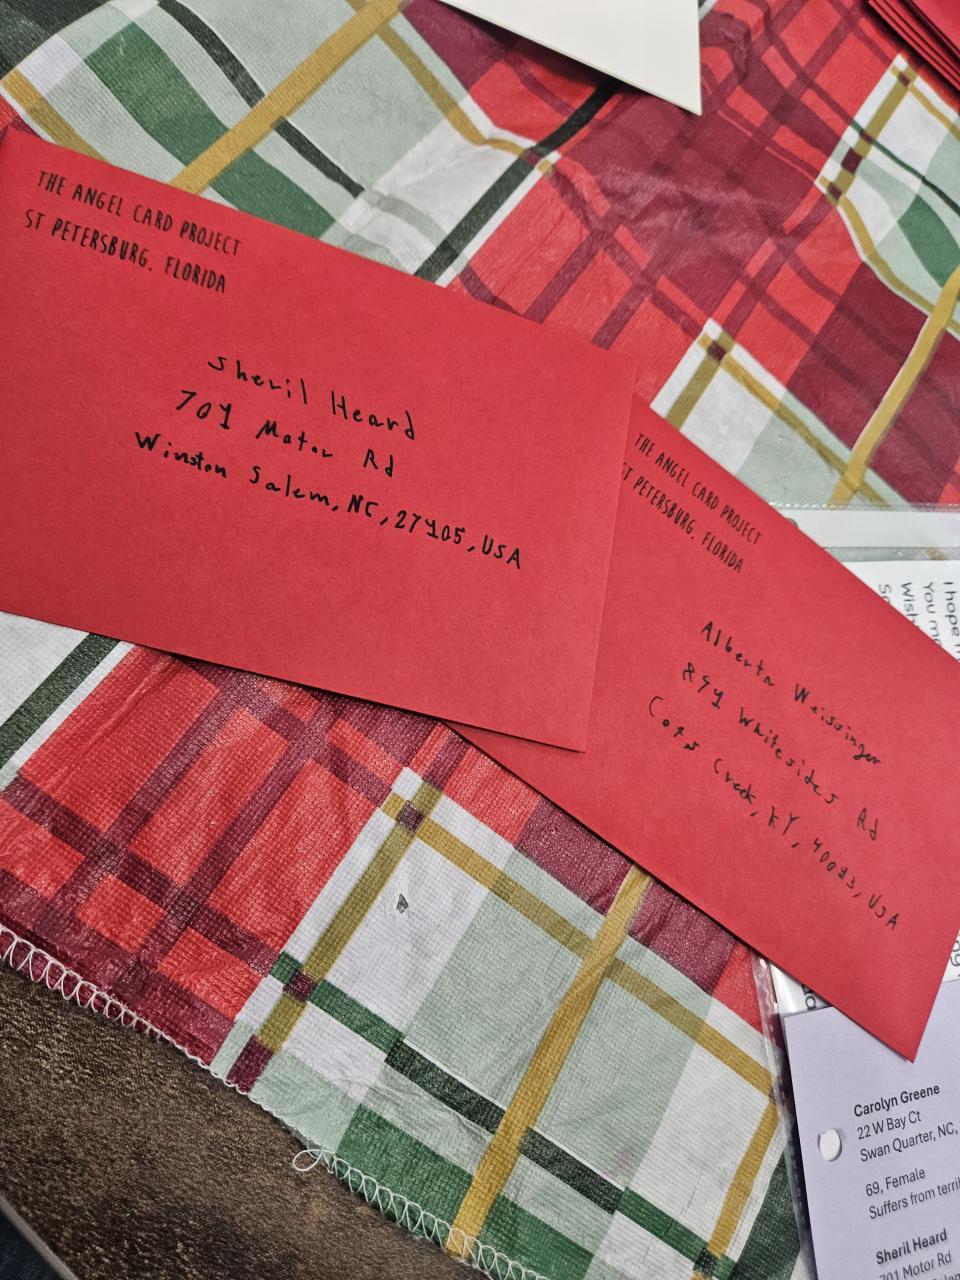 THE ANGEL CARD PROJECT
ST PETERSBURG. FLORIDA
Sheril Heard
701 Motor Rd
Winston Salem, NC, 27105, USA
THE ANGEL CARD PROJECT
ST PETERSBURG. FLORIDA
Alberta Weissinger
891 Whitesides Rd
Coxs Creek, KY, 40013, USA
I hope
You m
Wish
Carolyn Greene
22 W Bay Ct
Swan Quarter, NC,
69, Female
Suffers from terri
Sheril Heard
701 Motor Rd